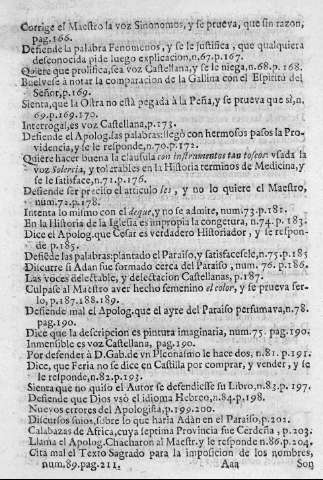 Corrige el Maestro la voz Sinonomos, y se prueva, que sin razon,
pag.166.
Defiende la palabra Fenomenos, y se le justifica, que qualquiera
desconocida pide luego explicacion, n.67.p.167.
Quiere que prolifica, sea voz Castellana, y se le niega, n.68.p.168.
Buelvese à notar la comparacion de la Gallina con el Espiritu del
Señor, p.169.
Sienta, que la Ostra no está pegada à la Peña, y se prueva que sì, n.
69.p.169.170.
Interrogal, es voz Castellana, p.173.
Defiende el Apolog. las palabras: llegò con hermosos pasos la Pro-
videncia, y se le responde, n.70.p.172.
Quiere hacer buena la clausula con instrumentos tan toscos vsada la
voz Solercia, y tolerables en la Historia terminos de Medicina, y
se le satisface, n.71.p.176.
Defiende se preciso el articulo les, y no lo quiere el Maestro,
num.72.p.178.
Intenta lo mismo con el deque, y no se admite, num.73.p.182.
En la Historia de la Iglesia es impropia la congetura, n.74. p. 183.
Dice el Apolog. que Cesar es verdadero Historiador, y le respon-
de p.185.
Defiēde las palabras: plantado el Paraiso, y satisfacesele, n.75.p.185
Discurre si Adan fue formado cerca del Paraiso, num. 76. p.186.
Las voces delectable, y delectacion Castellanas, p.187.
Culpase al Maestro aver hecho femenino el color, y se prueva ser-
lo, p.187.188.189.
Defiende mal el Apolog. que el ayre del Paraiso perfumava, n.78.
pag.190.
Dice que la descripcion es pintura imaginaria, num.75. pag.190.
Inmensible es voz Castellana, pag.190.
Por defender à D. Gab. de vn Pleonasmo le hace dos, n.81. p.191.
Dice, que Feria no se dice en Castilla por comprar, y vender, y se
le responde, n.82.p.193.
Sienta que no quiso el Autor se defendiesse su Libro, n.83.p.197.
Defiende que Dios vsò el idioma Hebreo, n.84.p.198.
Nuevos errores del Apologista, p.199.200.
Discursos suios, sobre lo que haria Adàn en el Paraiso, p.202.
Calabazas de Africa, cuya septima Provincia fue Cerdeña, p.203.
Llama el Apolog. Chacharon al Maestr. y le responde n.86.p.204.
Cita mal el Texto Sagrado para la imposicion de los nombres,
num.89.pag.211. Aaa Son